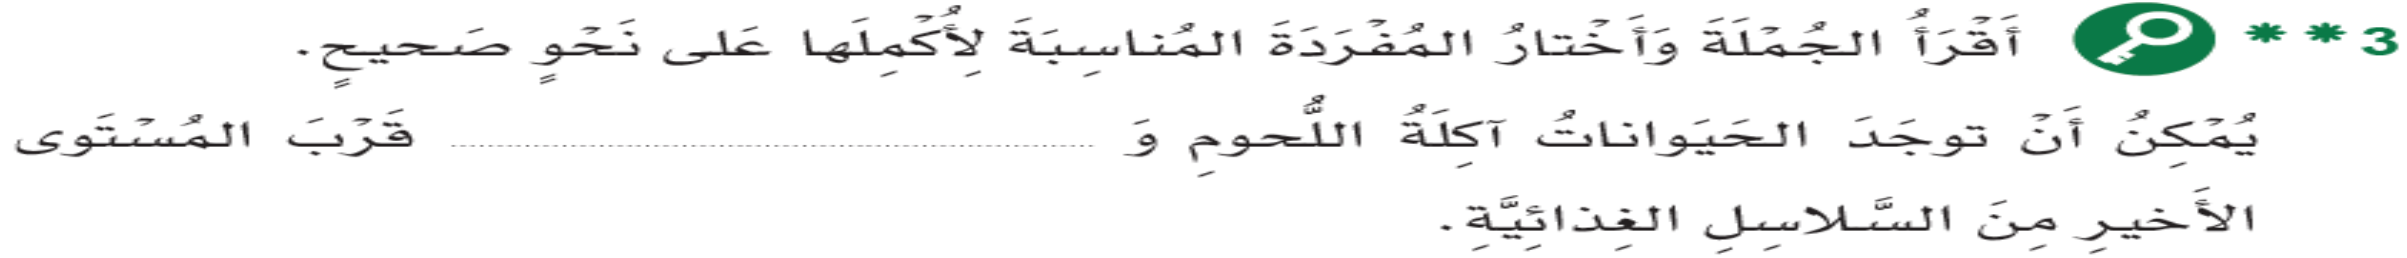 3 ** أَقْرَأُ الجُمْلَةَ وَأَخْتارُ المُفْرَدَةَ المُناسِبَةَ لِأُكْمِلَها عَلى نَحْوٍ صَحيحٍ.
يُمْكِنُ أَنْ توجَدَ الحَيَواناتُ آكِلَةُ اللُّحومِ وَ ........................ قَرْبَ المُسْتَوى
الأَخيرِ مِنَ السَّلاسِلِ الغِذائِيَّةِ.